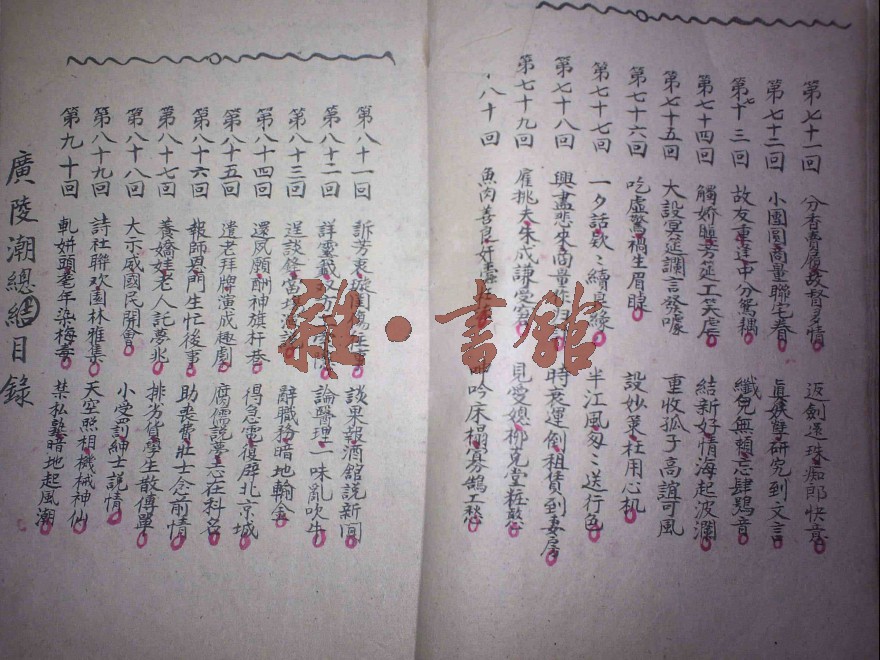 第七十一回 分香賣履故督多情 返劍還珠痴郎快意
第七十二回 小團圓商量聯宅眷 研究到文言
第七十三回 故友重逢中分鴛耦 無賴忘肆鴞音
第七十四回 觸嬌瞋芳筵工笑虐 結新好情海起波瀾
第七十五回 大設冥筵讕言發噱 重收孤子高誼可風
第七十六回 吃虛驚禍生眉睫 設妙策杜用心机
第七十七回 一夕話欵〻續良緣 半江風匆〻送行色
第七十八回 興盡悲來商量 時衰運倒租賃到妻房
第七十九回 雇挑夫朱成謙受窘 見愛媳柳克堂粧憨
八十回 魚肉善良奸 呻吟床榻寡鵠工愁
第八十一回 訴芳衷璇閨傷 談果報酒館説新聞
第八十二回 詳靈籤 論醫理一味亂吹牛
第八十三回 逞談鋒當場 辭職務暗地輸金
第八十四回 還夙願酬神旗杆巷 得急電復辟北京城
第八十五回 遺老拜牌演成趣劇 腐儒説夢志在科名
第八十六回 報師恩門生忙後事 助喪費壯士念前情
第八十七回 養嬌娃老人記夢兆 排劣貨學生散傳單
第八十八回 大示威國民開會 小受罰紳士説情
第八十九回 詩社聯欢園林雅集 天空照相機械神仙
第九十回 軋姘頭老年染梅毒 禁私塾暗地起風潮
廣陵潮總結目錄
雜·書館